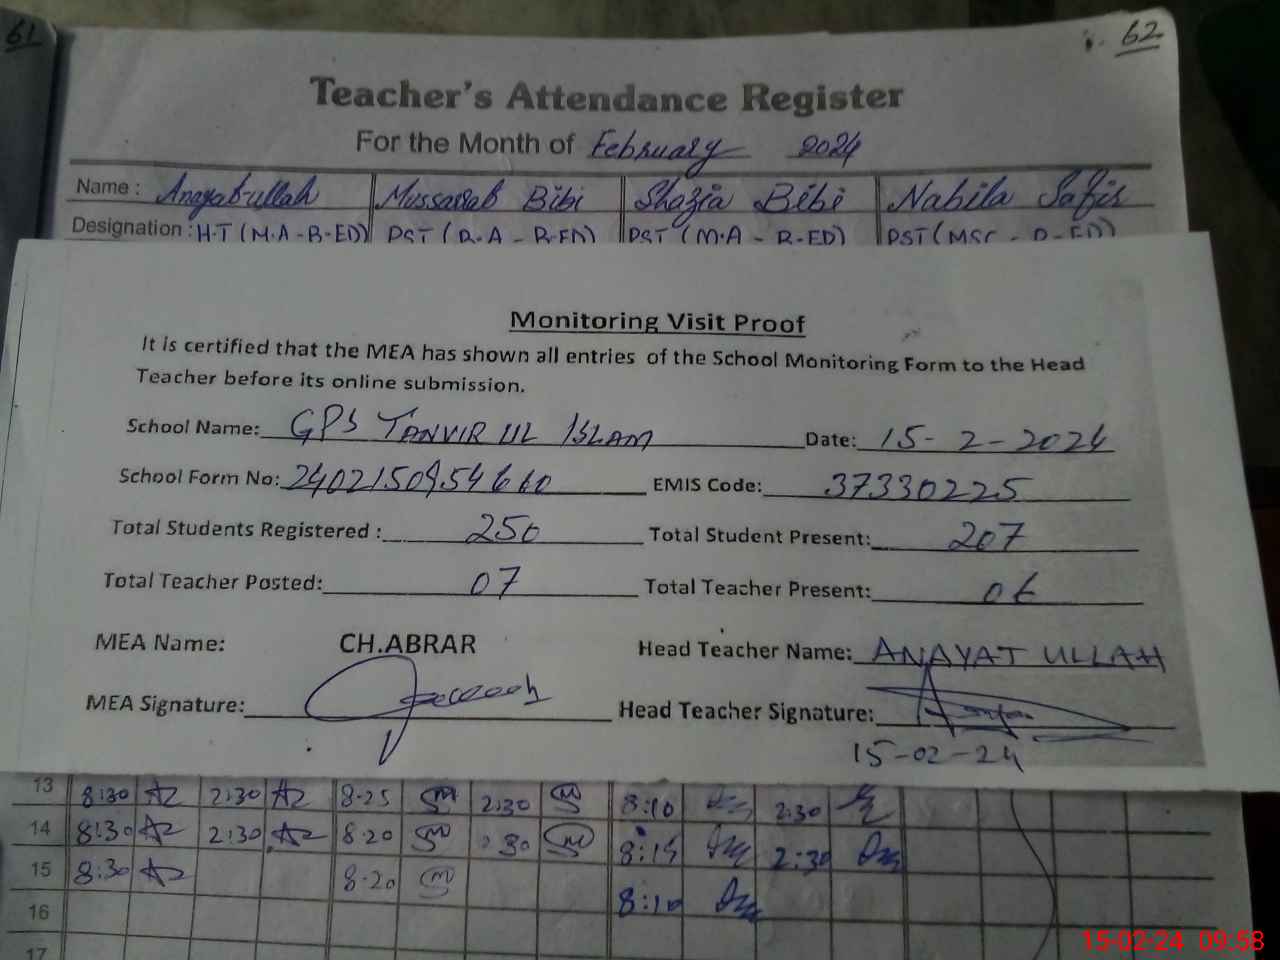 61
62
Teacher's Attendance Register
For the Month of February 2024
Name: Anayatullah Mussarrat Bibi Shazia Bibi Nabila Safir
Designation: H.T (M.A - B-ED) PST (B.A - B.ED) PST (M.A - B.ED) PST (MSC - B-ED)
Monitoring Visit Proof
It is certified that the MEA has shown all entries of the School Monitoring Form to the Head
Teacher before its online submission.
School Name: GPS TANVIR UL ISLAM Date: 15-2-2024
School Form No: EMIS Code: 37330225
Total Students Registered : 250 Total Student Present: 207
Total Teacher Posted: 07 Total Teacher Present: 06
MEA Name: CH.ABRAR Head Teacher Name: ANAYAT ULLAH
MEA Signature: Head Teacher Signature:
15-02-24
13 8:30 2:30 8-25 2:30 8:10 2:30
14 8:30 2:30 8-20 2:30 8:15 2:30
15 8:30 8-20 8:10
16
17
15-02-24 09:58